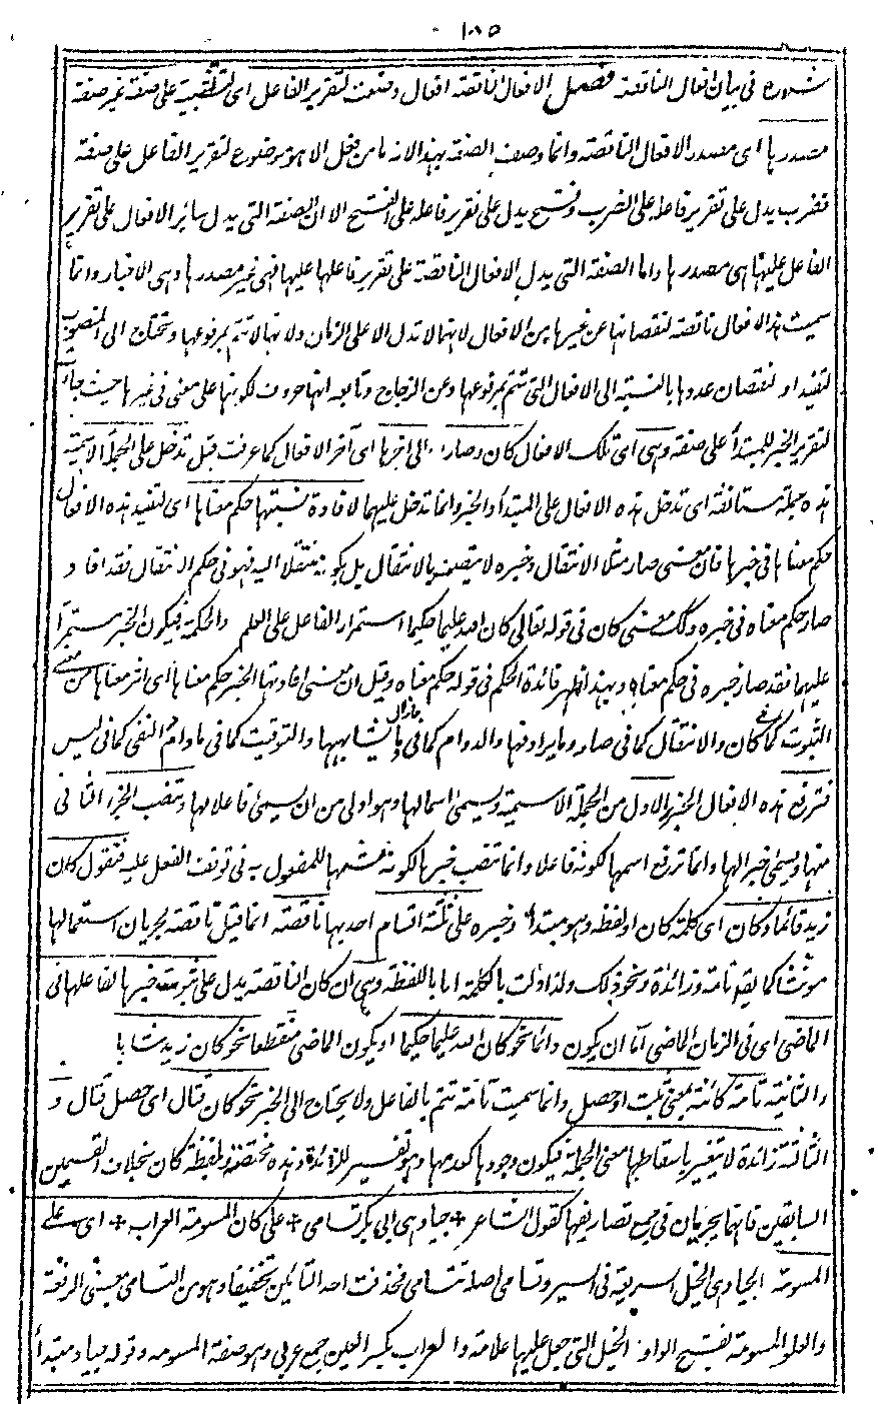 ١٨٥
شروع در بيان افعال الناقصة فصل الافعال الناقصة افعال وضعت لتقرير الفاعل اى لتثبيته على صفة غير صفة
مصدرها اى مصدر الافعال الناقصة وانما وصف الصفة بهذا لانه ما من فعل الا هو موضوع لتقرير الفاعل على صفة
فضرب يدل على تقرير فاعله على الضرب وفتح يدل على تقرير فاعله على الفتح الا ان الصفة التى يدل سائر الافعال على تقرير
الفاعل عليها هى مصدرها واما الصفة التى يدل الافعال الناقصة على تقرير فاعلها عليها فهى غير مصدرها وهى الاخبار وانما
سميت هذه الافعال ناقصة لنقصانها عن غيرها من الافعال لانها لا تدل الا على الزمان ولانها لا تتم بمرفوعها وتحتاج الى المنصوب
لتفيد او لنقصان عددها بالنسبة الى الافعال التى تتم بمرفوعها وعن الزجاج وتابعه انها حروف لكونها على معنى فى غيرها حيث جاءت
لتقرير الخبر للمبتدأ على صفة وهى اى تلك الافعال كان وصار الى اخرها اى آخر الافعال كما عرفت قبل تدخل على الجملة الاسمية
هذه جملة مستانفة اى تدخل هذه الافعال على المبتدأ والخبر وانما تدخل عليهما لافادة نسبتها حكم معناها اى لتفيد هذه الافعال
حكم معناها فى خبرها فان معنى صار مثلا الانتقال وخبره لا يتصف بالانتقال بل يكون منتقلا اليه فهو فى حكم الانتقال فقد افاد
صار حكم معناه فى خبره وكذلك معنى كان فى قوله تعالى كان الله عليما حكيما استمرار الفاعل على العلم والحكمة فيكون الخبر مستمرا
عليهما فقد صار خبره فى حكم معناه وبهذا ظهر فائدة الحكم فى قوله حكم معناه وقيل ان معنى افادتها الخبر حكم معناها اى اثر معناها من معنى
الثبوت كما فى كان والانتقال كما فى صار وما يرادفها والدوام كما فى ما زال وما يشابهها والتوقيت كما فى ما دام والنفى كما فى ليس
فترفع هذه الافعال الجزء الاول من الجملة الاسمية ويسمى اسما لها وهو اولى من ان يسمى فاعلا لها وتنصب الجزء الثانى
منها ويسمى خبرا لها وانما ترفع اسمها لكونه فاعلا وانما تنصب خبرها لكونه مشبها للمفعول به فى توقف الفعل عليه فتقول كان
زيد قائما وكان اى كلمة كان او لفظه وهو مبتدأ وخبره على ثلثة اقسام احدها ناقصة انما قيل ناقصة لجريان استعمالها
مونثا كما يقو تامة وزائدة ونحو ذلك ولذا ولت بالكلمة اما باللفظة وهى ان كان الناقصة يدل على ثبوت خبرها لفاعلها فى
الماضى اى فى الزمان الماضى اما ان يكون دائما نحو كان الله عليما حكيما او يكون الماضى منقطعا نحو كان زيد شابا
والثانية تامة كائنة بمعنى ثبت او حصل وانما سميت تامة تتم بالفاعل ولا يحتاج الى الخبر نحو كان قتال اى حصل قتال و
الثالثة زائدة لا يتغير باسقاطها معنى الجملة فيكون وجودها كعدمها وهو تفسير للزائدة وهذه مختصة بلفظة كان بخلاف القسمين
السابقين فانهما يجريان فى جميع تصاريفها كقول الشاعر + جياد بنى ابى بكر تسامى + على كان المسومة العراب + اى على
المسومة الجياد هى الخيل السريعة فى السير وتسامى اصله تتسامى فحذفت احد التائين تخفيفا وهو من التسامى بمعنى الرفعة
والعلو المسومة بفتح الواو الخيل التى جعل عليها علامة والعراب بكسر العين جمع عربى وهو صفة المسومة وقوله جياد مبتدأ